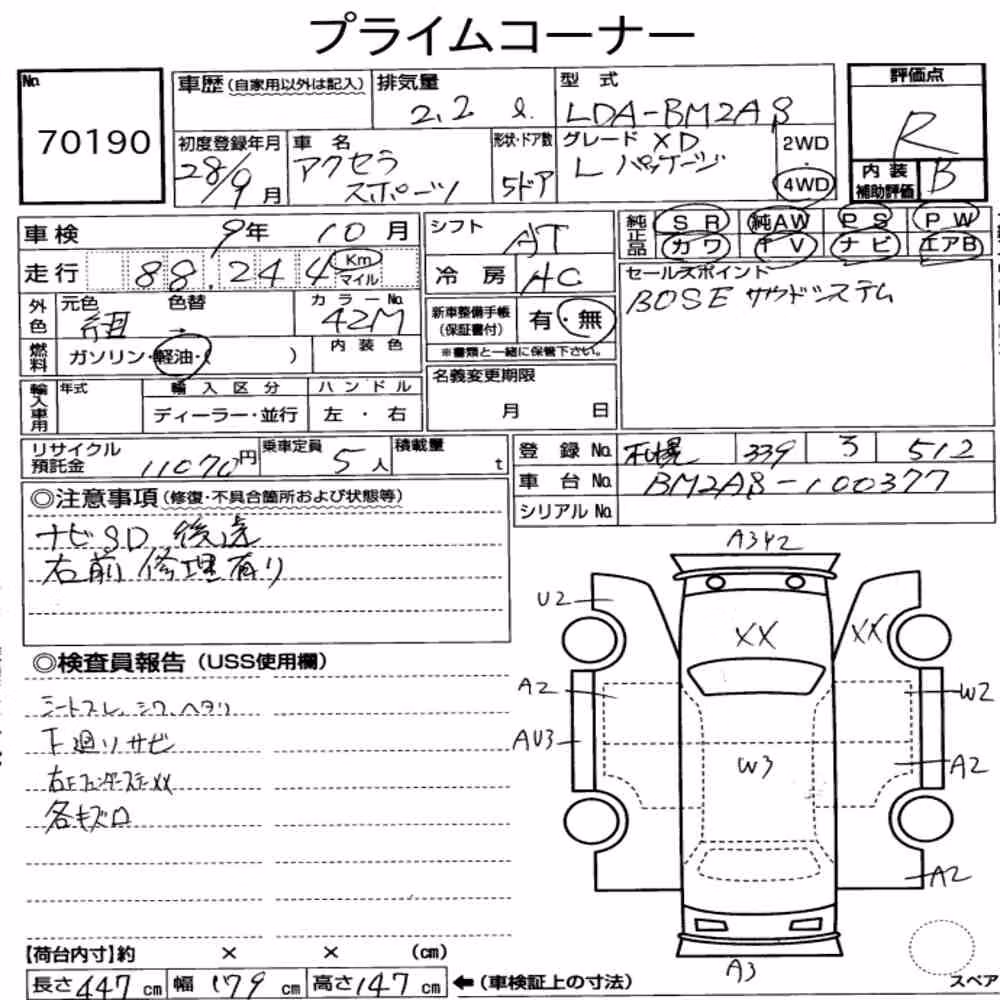 プライムコーナー
No. 70190
車歴(自家用以外は記入)
排気量 2.2 ℓ
型式 LDA-BM2AS
評価点 R
内装補助評価 B
初度登録年月 28/9月
車名 アクセラ スポーツ
形状・ドア数 5ドア
グレード XD
L パッケージ
2WD・4WD
車検 9年 10月
シフト AT
純正品 SR 純AW PS PW
カワ TV ナビ エアB
走行 88,244 Km マイル
冷房 AC
セールスポイント
BOSE サウンドシステム
外色 元色 紺 色替 → カラーNo. 42M
新車整備手帳(保証書付) 有・無
※書類と一緒に保管下さい。
燃料 ガソリン・軽油・( ) 内装色
名義変更期限 月 日
輸入車用 年式 輸入区分 ハンドル
ディーラー・並行 左・右
リサイクル預託金 11070円
乗車定員 5人
積載量 t
登録No. 札幌 339 ろ 512
車台No. BM2AS-100377
シリアルNo.
◎注意事項(修復・不具合箇所および状態等)
ナビSD 後送
右前 修理有り
A3Y2
U2
XX XX
◎検査員報告(USS使用欄)
シートスレ、シワ、ヘタリ
下廻りサビ
右Fフェンダーステー XX
各キズ凹
A2 W2
AU3 W3 A2
A2
A3
【荷台内寸】約 × × (cm)
長さ 447 cm 幅 179 cm 高さ 147 cm ←(車検証上の寸法)
スペア